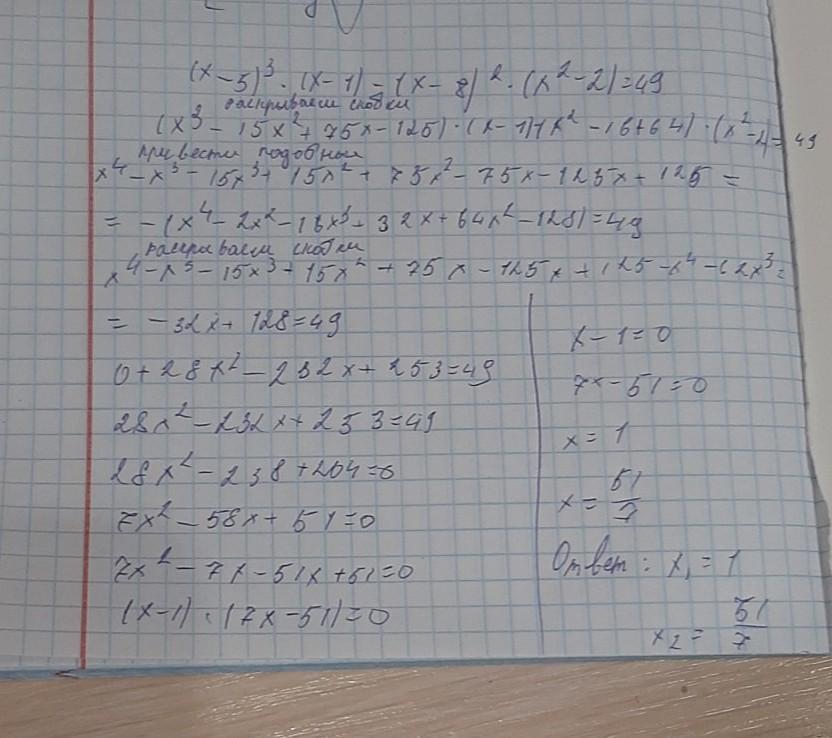 (x-5)³·(x-1)-(x-8)²·(x²-2)=49
раскрываем скобки
(x³-15x²+75x-125)·(x-1)(x²-16+64)·(x²-2)=49
привести подобные
x⁴-x³-15x³+15x²+75x²-75x-125x+125=
=-(x⁴-2x²-16x³+32x+64x²-128)=49
раскрываем скобки
x⁴-x³-15x³+15x²+75x-125x+125-x⁴-62x³=
=-32x+128=49
0+28x²-232x+253=49
28x²-232x+253=49
28x²-238+204=0
7x²-58x+51=0
7x²-7x-51x+51=0
(x-1)·(7x-51)=0
x-1=0
7x-51=0
x=1
x=51/7
Ответ: x₁=1
x₂=51/7